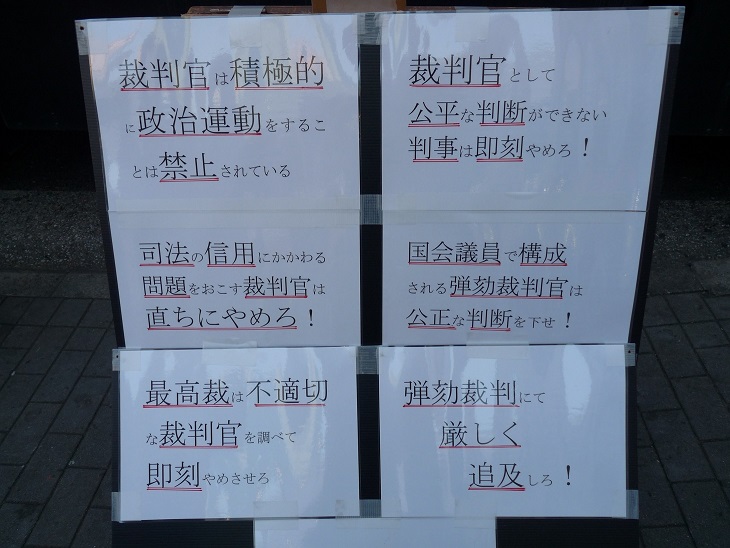 裁判官は積極的
に政治運動をするこ
とは禁止されている
裁判官として
公平な判断ができない
判事は即刻やめろ！
司法の信用にかかわる
問題をおこす裁判官は
直ちにやめろ！
国会議員で構成
される弾劾裁判官は
公正な判断を下せ！
最高裁は不適切
な裁判官を調べて
即刻やめさせろ
弾劾裁判にて
厳しく
追及しろ！